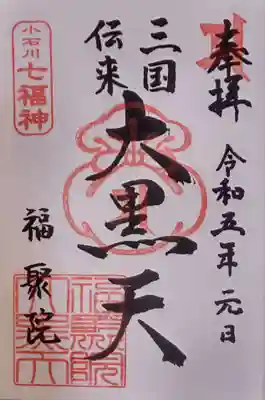 奉拝
令和五年元日
三国
伝来
大黒天
小石川
七福神
福聚院